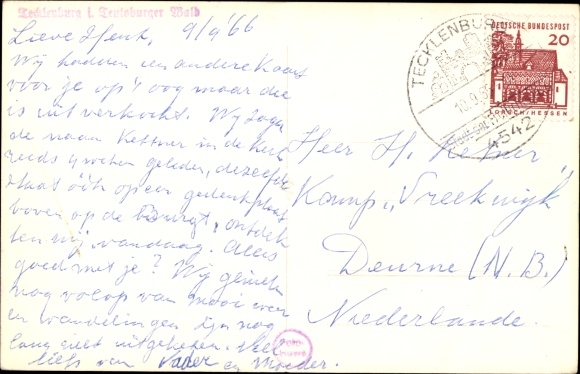 Tecklenburg i. Teutoburger Wald
Lieve Henk, 9/9 '66
Wij hadden een andere kaart
voor je op 't oog maar die
is uitverkocht. Wij zagen
de naam Kettner in de kerk
reeds 4 weken geleden, dezelfde
staat óók op een gedenkplaat
boven op de Burgt, ontdek
ten wij vandaag. Alles
goed met je? Wij genieten
nog volop van mooi weer
en wandelingen zijn nog
lang niet uitgelopen. Veel
liefs van Vader en Moeder.
TECKLENBURG
10.9.66
4542
DEUTSCHE BUNDESPOST
20
LORSCH/HESSEN
Heer H. Kettner
Kamp "Vreekwijk"
Deurne (N.B.)
Niederlande.